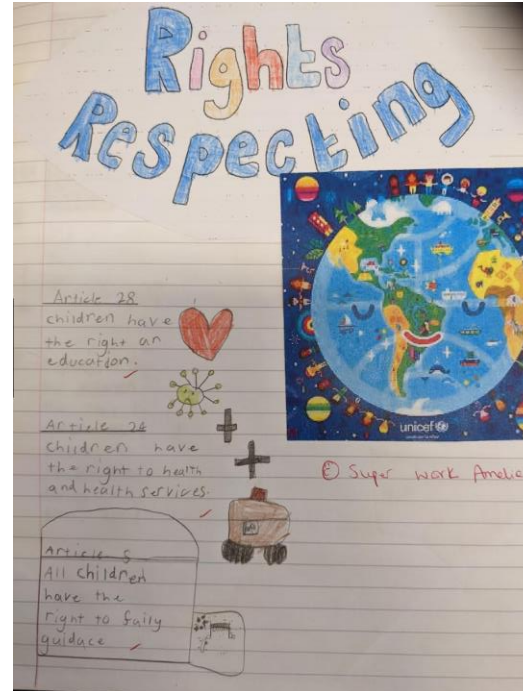 Rights
Respecting
Article 28
children have
the right an
education.
unicef
Article 24
children have
the right to health
and health services.
Super work Amelie
Article 5
All children
have the
right to faily
guidace